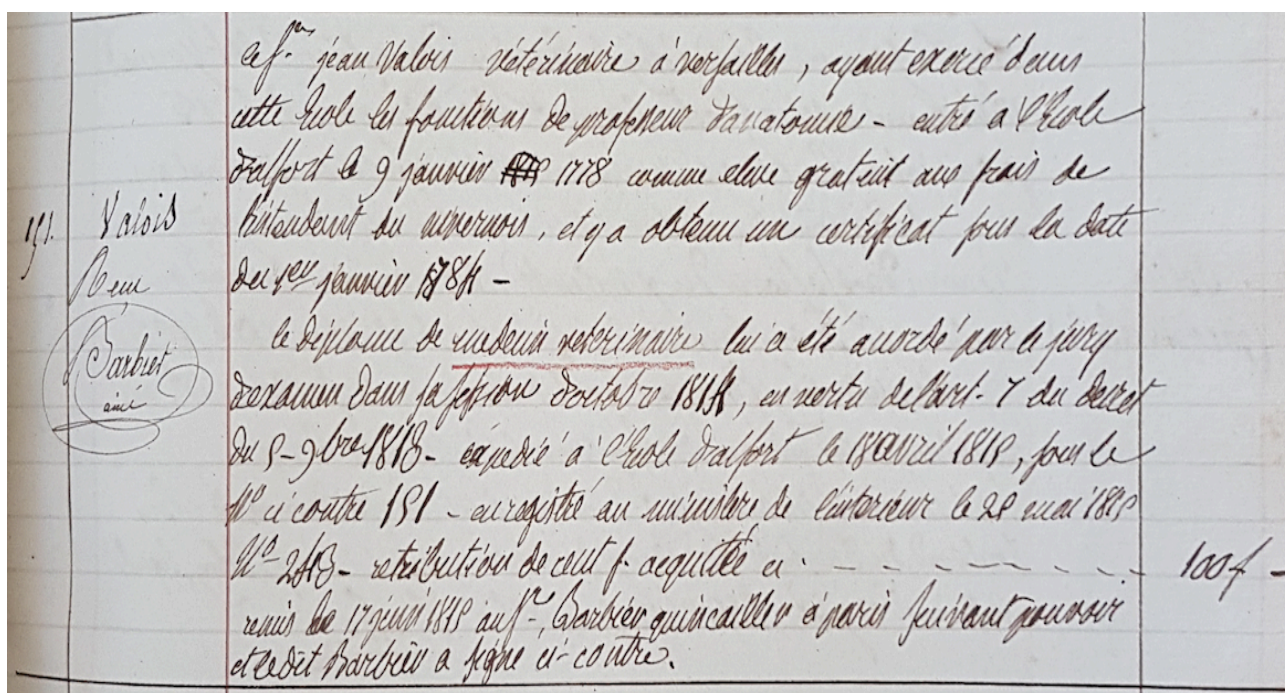 Le Sr. jean Valois vétérinaire à versailles, ayant exercé dans
cette Ecole les fonctions de professeur d'anatomie - entré à l'Ecole
d'alfort le 9 janvier 1778 comme eleve gratuit aux frais de
l'intendant du nivernois, et y a obtenu un certificat sous la date
du 1er janvier 1784 -
151. Valois
Reçu
Barbier
ainé
le diplome de medecin veterinaire lui a été accordé par le jury
d'examen dans sa session d'octobre 1814, en vertu de l'art. 7 du decret
du 5 - 9bre 1813 - expedié à l'Ecole d'alfort le 18 avril 1815, sous le
No ci contre 151 - enregistré au ministère de l'interieur le 25 mai 1815
No 243 - retribution de cent f. acquittée ci - - - - - - - - 100f -
remis le 17 juin 1815 au Sr. Barbier quincailler à paris suivant pouvoir
et ledit Barbier a signé ci-contre.